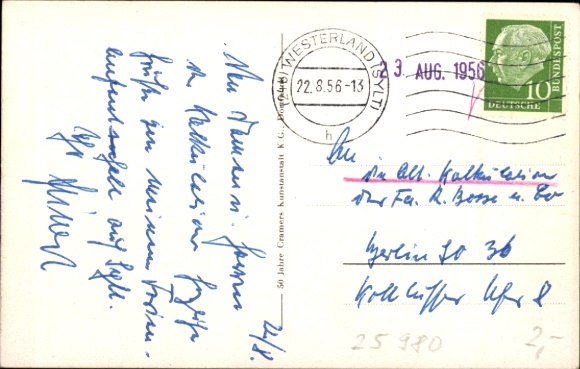 22/8.
Den Damen u. Herren
der Kalkulation herzliche
Grüße von meinem Ferien-
aufenthalt auf Sylt.
Ihr
50 Jahre Cramers Kunstanstalt K G., Dortmund
(24b) WESTERLAND (SYLT)
22.8.56-13
h
23. AUG. 1956
10
DEUTSCHE
BUNDESPOST
An
die Abt. Kalkulation
der Fa. R. Bosse u. Co
Berlin SO 36
Kottbusser Ufer 8
25980
2,-